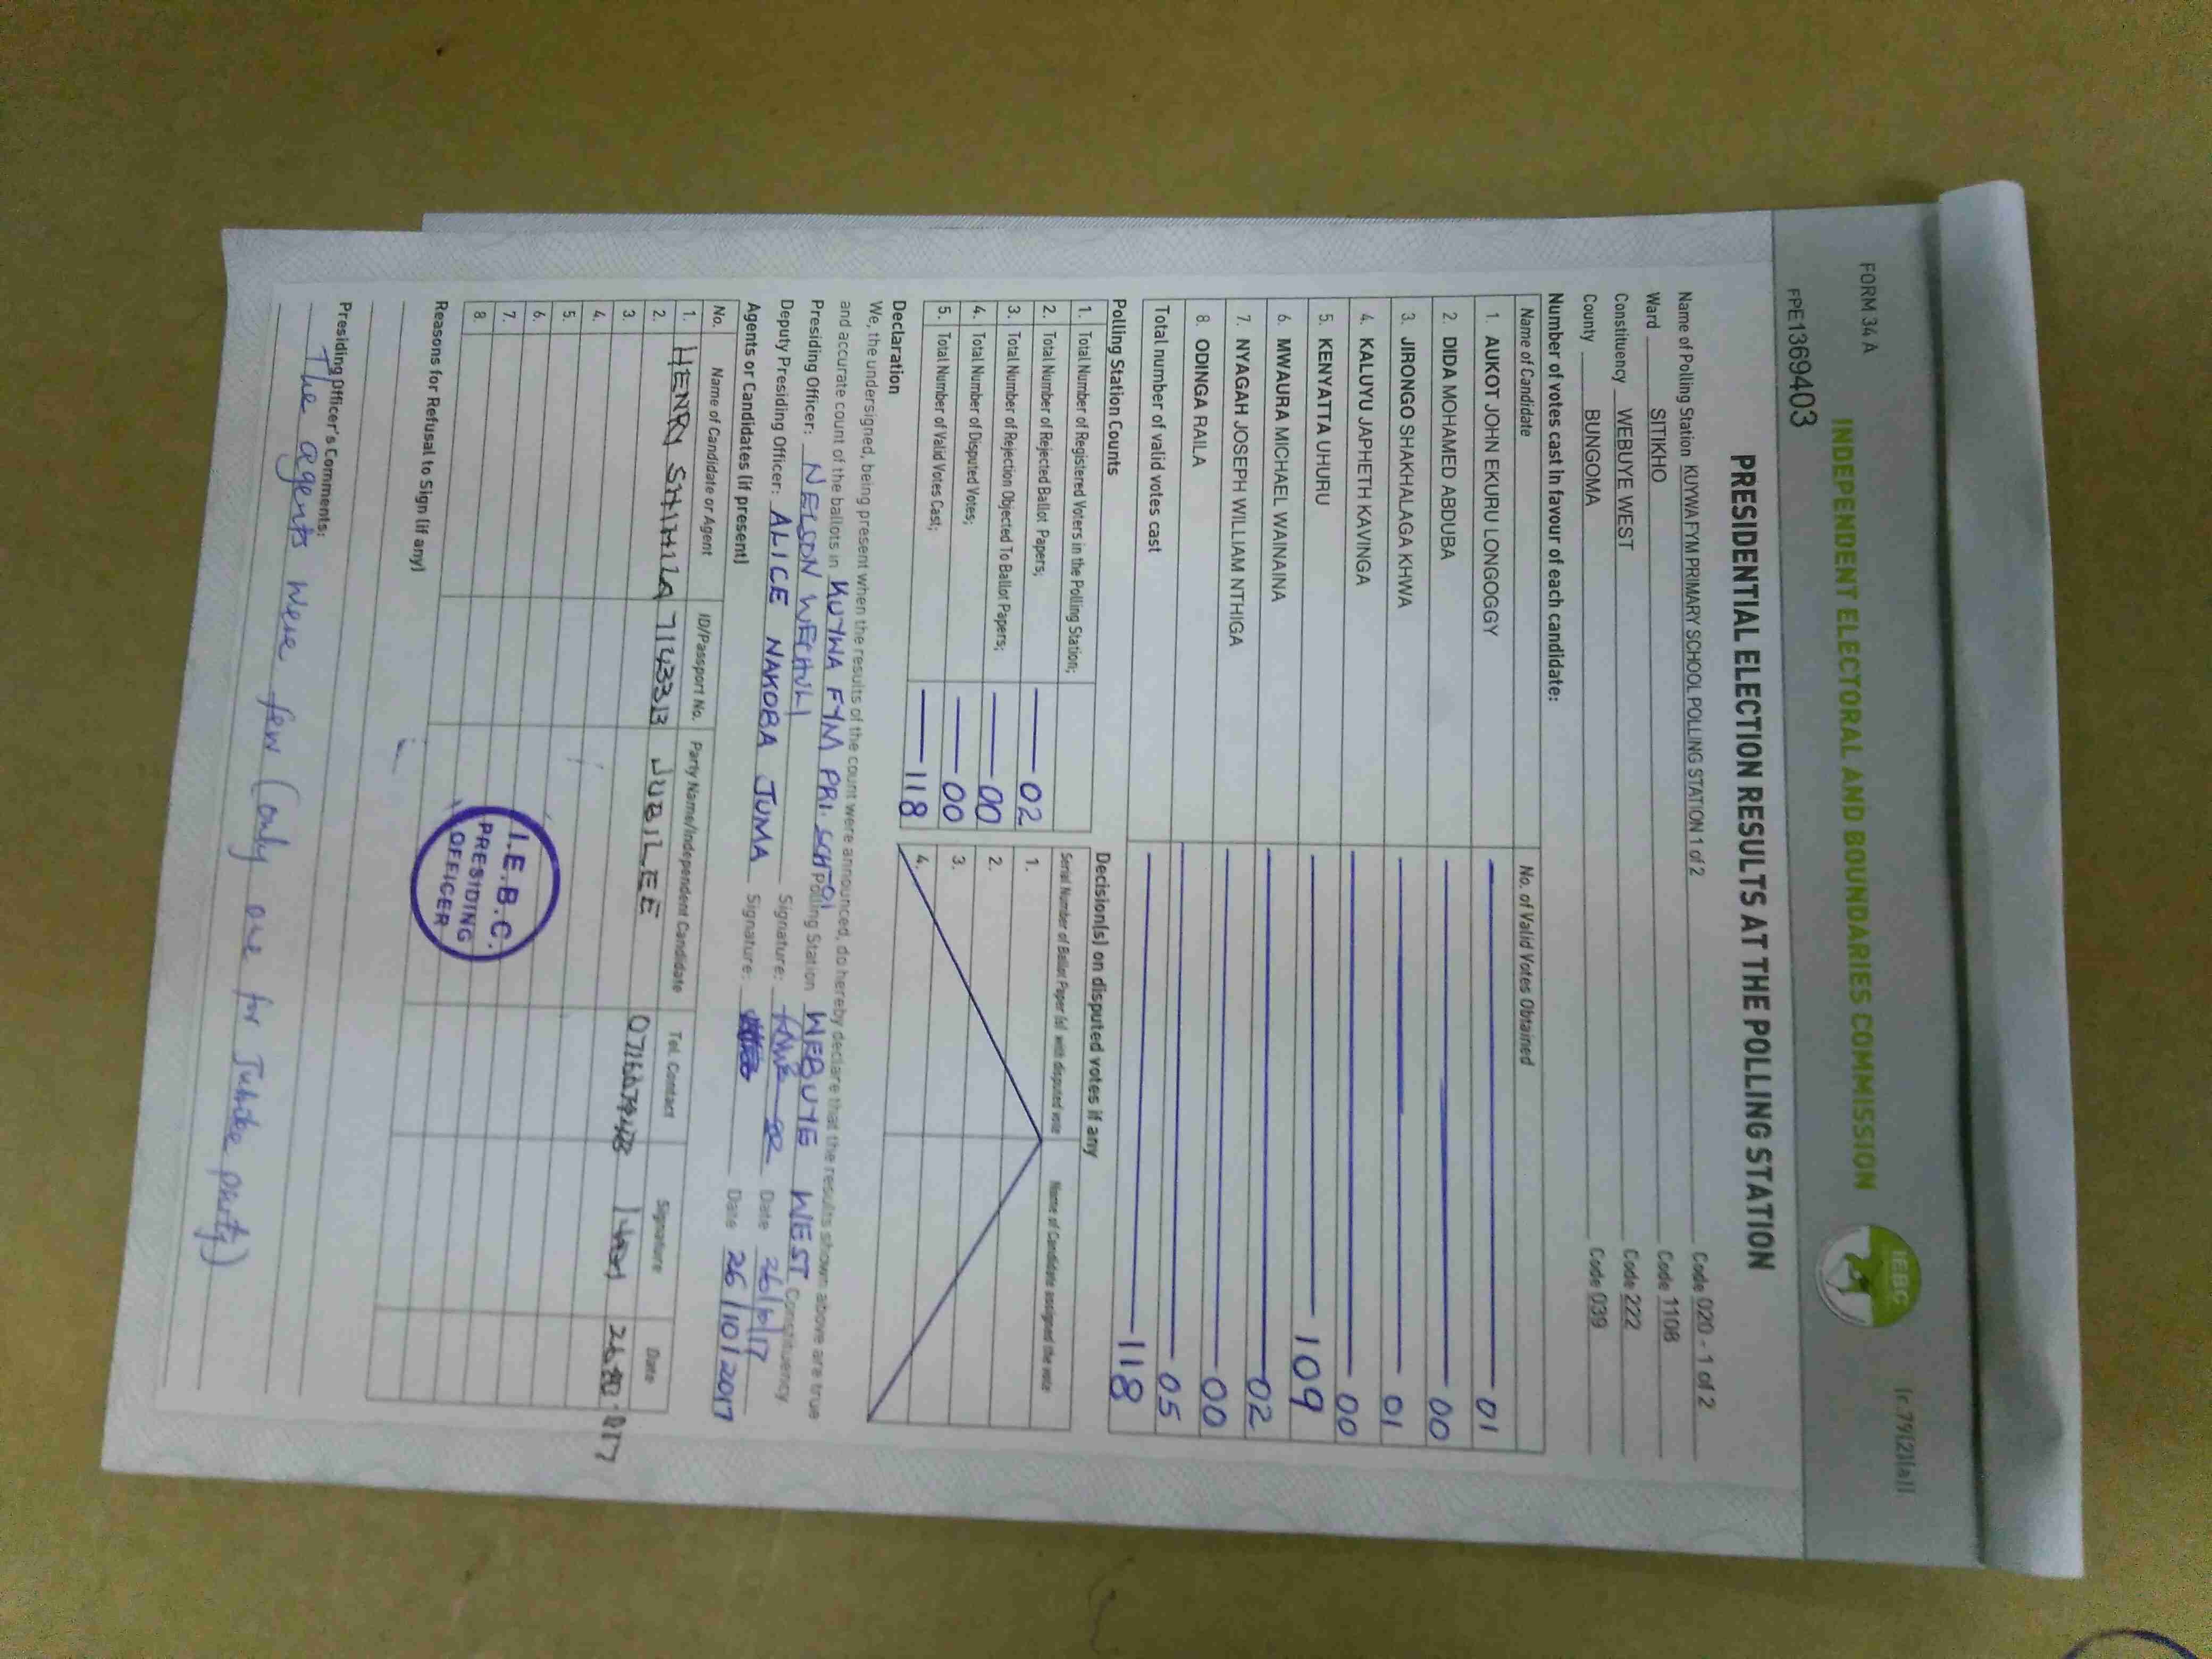 FORM 34 A
(r.79(2)(a))
INDEPENDENT ELECTORAL AND BOUNDARIES COMMISSION
IEBC
FPE1369403
PRESIDENTIAL ELECTION RESULTS AT THE POLLING STATION
Name of Polling Station KUYWA FYM PRIMARY SCHOOL POLLING STATION 1 of 2 Code 020 - 1 of 2
Ward SITIKHO Code 1108
Constituency WEBUYE WEST Code 222
County BUNGOMA Code 039
Number of votes cast in favour of each candidate:
Name of Candidate No. of Valid Votes Obtained
1. AUKOT JOHN EKURU LONGOGGY 01
2. DIDA MOHAMED ABDUBA 00
3. JIRONGO SHAKHALAGA KHWA 01
4. KALUYU JAPHETH KAVINGA 00
5. KENYATTA UHURU 109
6. MWAURA MICHAEL WAINAINA 02
7. NYAGAH JOSEPH WILLIAM NTHIGA 00
8. ODINGA RAILA 05
Total number of valid votes cast 118
Polling Station Counts
1. Total Number of Registered Voters in the Polling Station;
2. Total Number of Rejected Ballot Papers; 02
3. Total Number of Rejection Objected To Ballot Papers; 00
4. Total Number of Disputed Votes; 00
5. Total Number of Valid Votes Cast; 118
Decision(s) on disputed votes if any
Serial Number of Ballot Paper (s) with disputed vote Name of Candidate assigned the vote
1.
2.
3.
4.
Declaration
We, the undersigned, being present when the results of the count were announced, do hereby declare that the results shown above are true
and accurate count of the ballots in KUYWA FYM PRI. SCHOOL Polling Station WEBUYE WEST Constituency
Presiding Officer: NELSON WECHULI Signature: Date 26/10/17
Deputy Presiding Officer: ALICE NAKOBA JUMA Signature: Date 26/10/2017
Agents or Candidates (if present)
No. Name of Candidate or Agent ID/Passport No. Party Name/Independent Candidate Tel. Contact Signature Date
1. HENRY 7143313 JUBILEE
2.
3.
4.
5.
6.
7.
8.
I.E.B.C.
PRESIDING
OFFICER
Reasons for Refusal to Sign (if any)
Presiding Officer's Comments:
The agents were few (only one for Jubilee party)